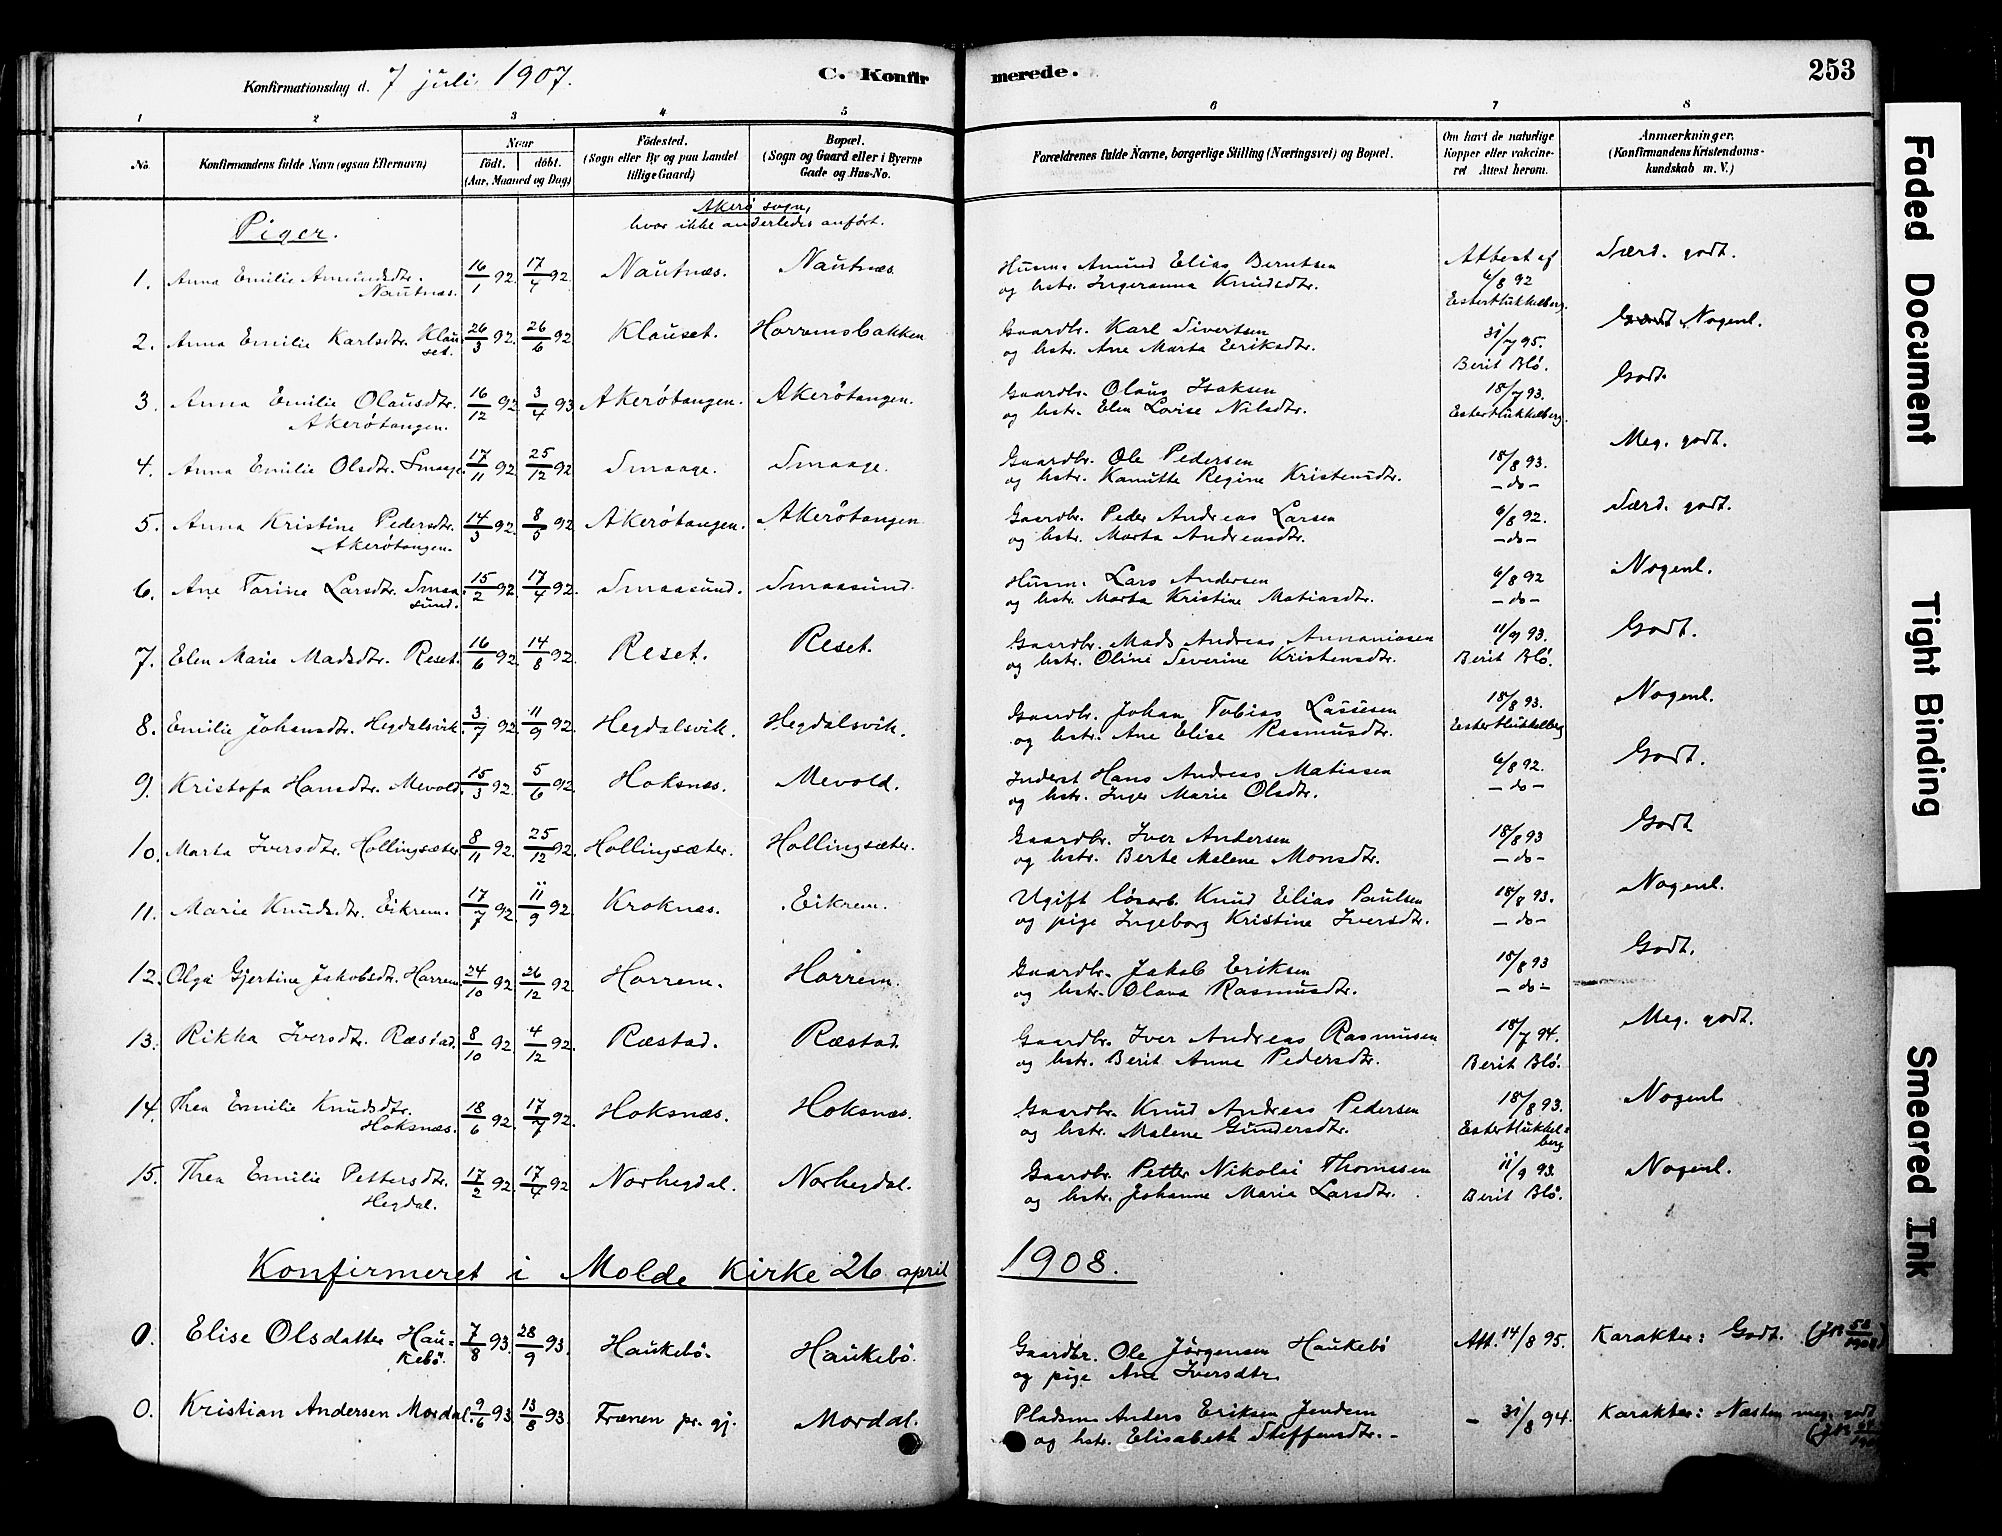 Konfirmationsdag d. 7 juli 1907.
C. Konfirmerede.
253
1 2 3 4 5 6 7 8
No. Konfirmandens fulde Navn (ogsaa Efternavn) Naar födt. döbt. (Aar, Maaned og Dag) Födested. (Sogn eller By og paa Landet tillige Gaard) Bopæl. (Sogn og Gaard eller i Byerne Gade og Hus-No. Forældrenes fulde Navne, borgerlige Stilling (Næringsvei) og Bopæl. Om havt de naturlige Kopper eller vakcineret Attest herom. Anmærkninger. (Konfirmandens Kristendomskundskab m. V.)
Akerø sogn,
Piger. hvor ikke anderledes anført.
1. Anna Emilie Amundsdtr. 16/1 92. 17/4 92. Nautnæs. Nautnæs. Husm. Amund Elias Berntsen Attest af 6/8 92 Særd. godt.
Nautnæs. og hstr. Ingeranna Knudsdtr. Ester Hukkelberg.
2. Anna Emilie Karlsdtr. Klau 26/3 92. 26/6 92 Klauset. Harremsbakken Gaardbr. Karl Sivertsen 31/7 95. Godt Nogenl.
set. og hstr. Ane Marta Eriksdtr. Berit Blø.
3. Anna Emilie Olausdtr. 16/12 92. 3/4 93 Akerøtangen. Akerøtangen. Gaardbr. Olaus Isaksen 18/7 93. Godt.
Akerøtangen. og hstr. Elen Lovise Nilsdtr. Ester Hukkelberg.
4. Anna Emilie Olsdtr. Smaage. 17/11 92. 25/12 92 Smaage. Smaage. Gaardbr. Ole Pedersen 18/8 93. Meg. godt.
og hstr. Kanutte Regine Kristensdtr. - do -
5. Anna Kristine Pedersdtr. 14/3 92. 8/5 92 Akerøtangen. Akerøtangen Gaardbr. Peder Andreas Larsen 6/8 92. Særd. godt.
Akerøtangen. og hstr. Marta Andreasdtr. - do -
6. Ane Tarine Larsdtr. Smaa 15/2 92. 17/4 92. Smaasund. Smaasund. Husm. Lars Andersen 6/8 92 Nogenl.
sund. og hstr. Marta Kristine Matiasdtr. - do -
7. Elen Marie Madsdtr. Reset. 16/6 92. 14/8 92. Reset. Reset. Gaardbr. Mads Andreas Annaniasen 11/9 93. Godt.
og hstr. Oline Severine Kristensdtr. Berit Blø.
8. Emilie Johansdtr. Hegdalsvik. 3/7 92. 11/9 92. Hegdalsvik. Hegdalsvik. Gaardbr. Johan Tobias Lassesen 18/8 93. Nogenl.
og hstr. Ane Elise Rasmusdtr. Ester Hukkelberg
9. Kristofa Hansdtr. Mevold. 15/3 92. 5/6 92. Hoksnæs. Mevold. Inderst Hans Andreas Matiasen 6/8 92. Godt.
og hstr. Inger Marie Olsdtr. - do -
10. Marta Iversdtr. Hollingsæter 8/11 92. 25/12 92. Hollingsæter. Hollingsæter. Gaardbr. Iver Andersen 18/8 93 Godt
og hstr. Berte Malene Monsdtr. - do -
11. Marie Knudsdtr. Eikrem. 17/7 92. 11/9 92. Kroknæs. Eikrem. Ugift løsarb. Knud Elias Paulsen 18/8 93. Nogenl.
og pige Ingeborg Kristine Iversdtr. - do -
12. Olga Gjertine Jakobsdtr. Harrem 24/10 92. 26/12 92. Harrem. Harrem. Gaardbr. Jakob Eriksen 18/8 93 Godt.
og hstr. Olava Rasmusdtr. - do -
13. Rikka Iversdtr. Ræstad. 8/10 92. 4/12 92. Ræstad. Ræstad. Gaardbr. Iver Andreas Rasmusen 18/7 94. Meg. godt.
og hstr. Berit Anne Pedersdtr. Berit Blø.
14. Thea Emilie Knudsdtr. 18/6 92. 17/7 92. Hoksnæs. Hoksnæs. Gaardbr. Knud Andreas Pedersen 18/8 93. Nogenl
Hoksnæs. og hstr. Malene Gundersdtr. Ester Hukkelberg
15. Thea Emilie Pettersdtr. 17/2 92. 17/4 92 Norhegdal. Norhegdal. Gaardbr. Petter Nikolai Thomasen 11/9 93. Nogenl.
Hegdal. og hstr. Johanne Maria Larsdtr. Berit Blø.
Konfirmeret i Molde Kirke 26 april 1908.
0. Elise Olsdatter Hau- 7/8 93. 28/9 93. Haukebø. Haukebø. Gaardbr. Ole Jørgensen Haukebø Att. 14/8 95. Karakter: Godt. (JN 58/1908)
kebø. og pige Ane Iversdtr.
0. Kristian Andersen Mordal. 9/6 93. 13/8 93 Frænen pr. gj. Mordal. Pladsm. Anders Eriksen Jendem - 31/8 94. Karakter: Næsten meg. godt
og hstr. Elisabeth Steffensdtr. -
Faded Document
Tight Binding
Smeared Ink